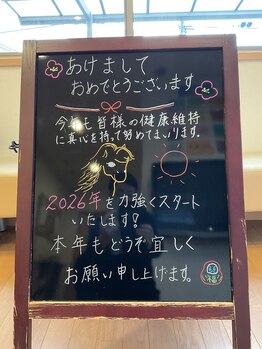 あけまして
おめでとうございます
今年も皆様の健康維持
に真心を持って努めてまいります。
2026年を力強くスタート
いたします!
本年もどうぞ宜しく
お願い申し上げます。